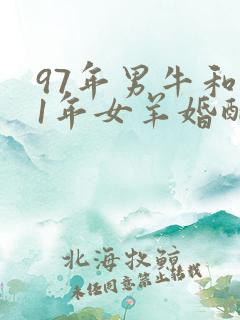 97年男牛和
1年女羊婚配
北海牧鲸
未经同意禁止转载